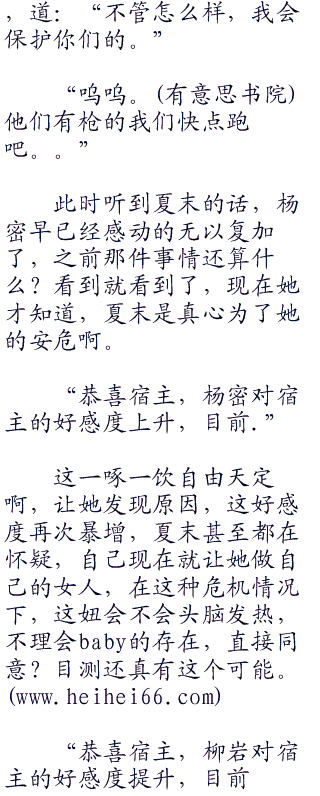 ，道：“不管怎么样，我会
保护你们的。”
“呜呜。(有意思书院)
他们有枪的我们快点跑
吧。。”
此时听到夏末的话，杨
密早已经感动的无以复加
了，之前那件事情还算什
么？看到就看到了，现在她
才知道，夏末是真心为了她
的安危啊。
“恭喜宿主，杨密对宿
主的好感度上升，目前.”
这一啄一饮自由天定
啊，让她发现原因，这好感
度再次暴增，夏末甚至都在
怀疑，自己现在就让她做自
己的女人，在这种危机情况
下，这妞会不会头脑发热，
不理会baby的存在，直接同
意？目测还真有这个可能。
(www.heihei66.com)
“恭喜宿主，柳岩对宿
主的好感度提升，目前